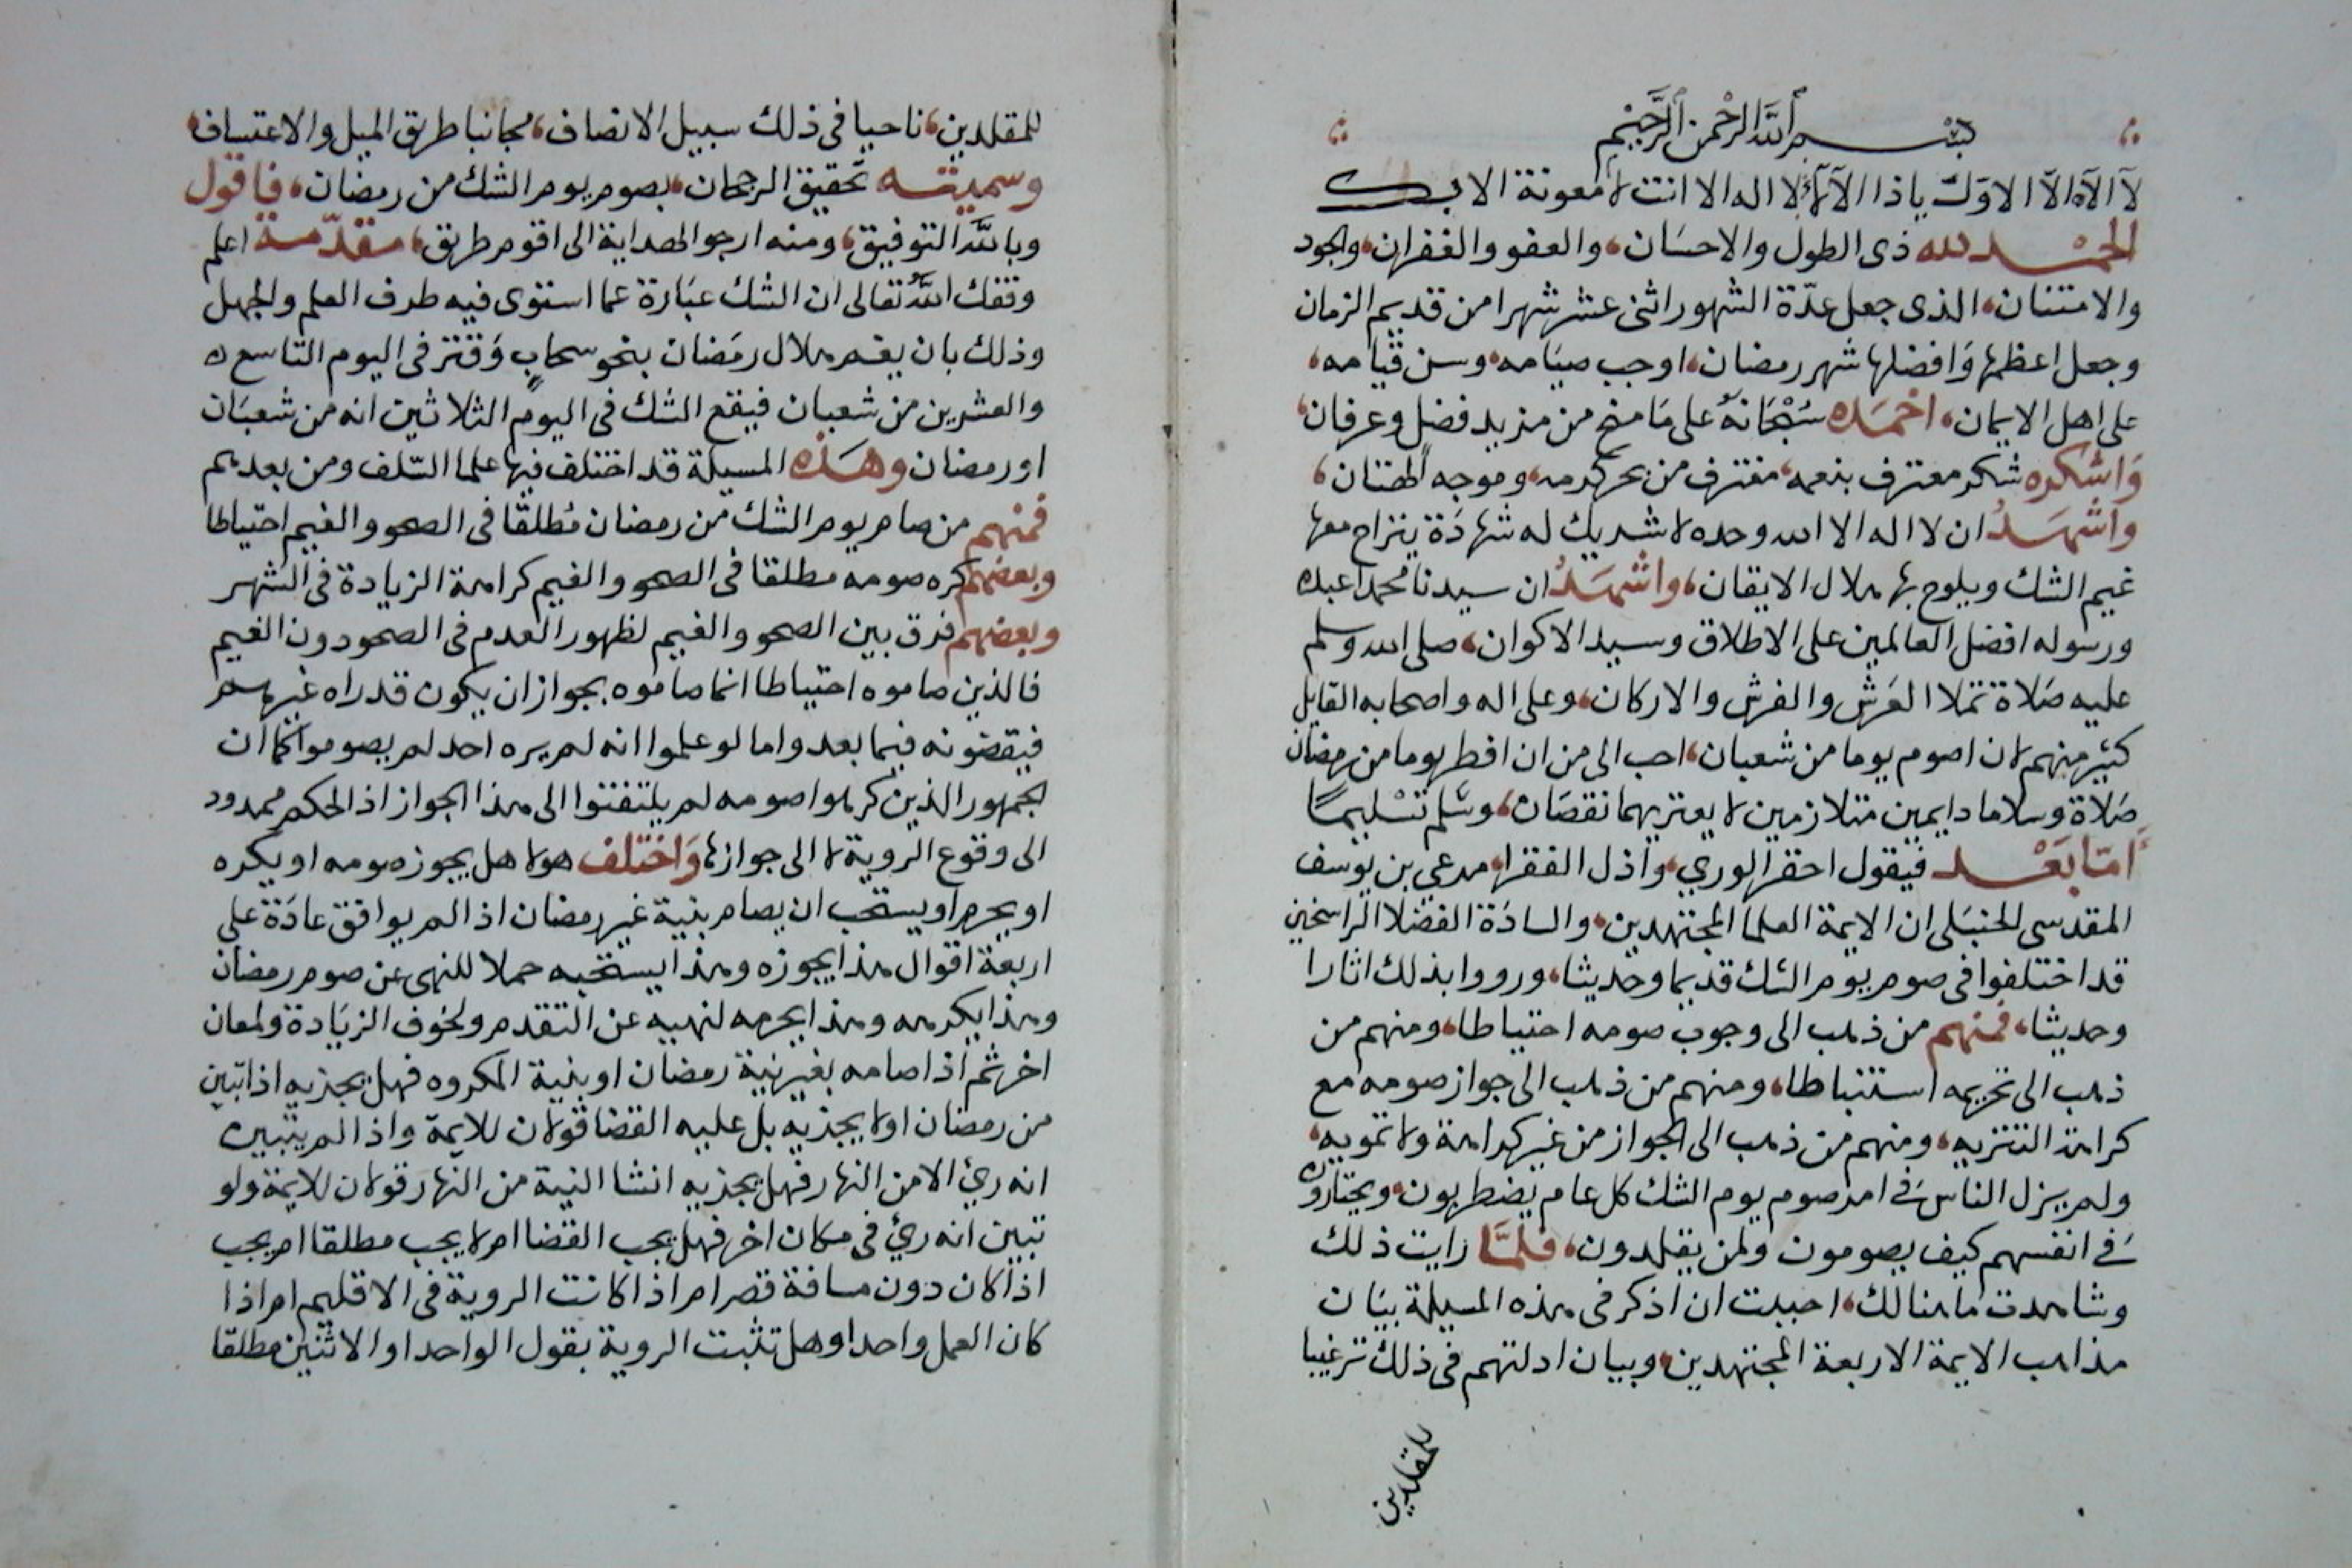 بسم الله الرحمن الرحيم
لا الاه الا الاوك ياذا الآلاء لا اله الا انت لا معونة الا بك
الحمد لله ذى الطول والاحسان، والعفو والغفران، والجود
والامتنان، الذى جعل عدّة الشهور اثنى عشر شهرا من قديم الزمان
وجعل اعظمها وَافضلها شهر رمضان، اوجب صيَامه، وسن قيامه،
على اهل الايمان، احْمَده سُبْحَانَهُ على مَا منح من مزيد فضل وعرفان،
وَاشكره شكر معترف بنعمه، مغترف من بحر كرمه، وموجه الهتان،
واشهَدُ ان لا اله الا الله وحده لا شريك له شهادَة ينزاح معها
غيم الشك ويلوح بها هلال الايقان، واشهَدُ ان سيدنا محمدا عبده
ورسوله افضل العالمين على الاطلاق وسيد الاكوان، صلى الله وسلم
عليه صَلاة تملا العَرش والفرش والاركان، وعلى اله واصحابه القايل
كثير منهم لان اصوم يوما من شعبان، احب الى من ان افطر يوما من رمضان
صَلاة وسلاما دايمين متلازمين لا يعتريهما نقصَان، وسَلم تسْليمًا
أمّا بَعْد فيقول احقر الورى، واذل الفقرا، مرعي بن يوسف
المقدسي الحنبَلى ان الايمة العلما المجتهدين، والسادَة الفضلا الراسخين
قد اختلفوا فى صوم يوم الشك قديما وحَديثا، ورووا بذلك اثارا
وحديثا، فمنهم من ذهب الى وجوب صومه احتياطا، ومنهم من
ذهب الى تحريمه استنباطا، ومنهم من ذهب الى جواز صومه مع
كراهة التنزيه، ومنهم من ذهب الى الجواز من غير كراهة ولا تمويه،
ولم يزل الناس فى امر صوم يوم الشك كل عام يضطربون، ويحتارون
فى انفسهم كيف يصومون ولمن يقلدون، فلمَّا رايت ذلك
وشاهدت ما هنالك، احببت ان اذكر فى هذه المسيلة بيَان
مذاهب الايمة الاربعة المجتهدين، وبيان ادلتهم فى ذلك ترغيبا
للمقلدين
للمقلدين، ناحيا فى ذلك سبيل الانصاف، مجانبا طريق الميل والاعتساف،
وسميته تحقيق الرجحان، بصوم يوم الشك من رمضان، فاقول
وبالله التوفيق، ومنه ارجو الهداية الى اقوم طريق، مقدّمة اعلم
وفقك الله تعالى ان الشك عبَارة عما استوى فيه طرف العلم والجهل
وذلك بان يغم هلال رمَضان بنحو سحابٍ وَقتر فى اليوم التاسع
والعشرين من شعبان فيقع الشك فى اليوم الثلاثين انه من شعبَان
او رمضان وهَذه المسيلة قد اختلف فيها علما السّلف ومن بعدهم
فمنهم من صام يوم الشك من رمضان مُطلقا فى الصحو والغيم احتياطا
وبعضهم كره صومه مطلقا فى الصحو والغيم كراهة الزيادة فى الشهر
وبعضهم فرق بين الصحو والغيم لظهور العدم فى الصحو دون الغيم
فالذين صاموه احتياطا انما صاموه بجواز ان يكون قد راه غيرهم
فيقضونه فيما بعد واما لو علموا انه لم يره احد لم يصوموا كما ان
الجمهور الذين كرهوا صومه لم يلتفتوا الى هذا الجواز اذ الحكم ممدود
الى وقوع الروية لا الى جوازها وَاختلف هولا هل يجوز صومه او يكره
او يحرم او يستحب ان يصام بنية غير رمضان اذا لم يوافق عادَة على
اربعة اقوال هذا يجوزه وهذا يستحبه حملا للنهى عن صوم رمضان
وهذا يكرهه وهذا يحرمه لنهيه عن التقدم ولخوف الزيَادة ولمعان
اخر ثم اذا صامه بغير نية رمضان او بنية المكروه فهل يجزيه اذا تبين
من رمضان او لا يجزيه بل عليه القضا قولان للايمة واذا لم يتبين
انه رئي الا من النهار فهل يجزيه انشا النية من النهار قولان للايمة ولو
تبين انه رئي فى مكان اخر فهل يجب القضا ام لا يجب مطلقا ام يجب
اذا كان دون مسافة قصر ام اذا كانت الروية فى الاقليم ام اذا
كان العمل واحدا وهل تثبت الروية بقول الواحد او الاثنين مطلقا